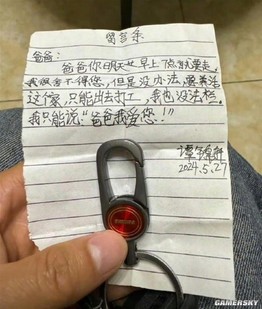 留言条
爸爸:
爸爸你明天早上7点就要走。
我很舍不得您,但是没办法,要养活
这个家,只能出去打工,我也没法拦。
我只能说“爸爸我爱您!”
2024.5.27
GAMERSKY